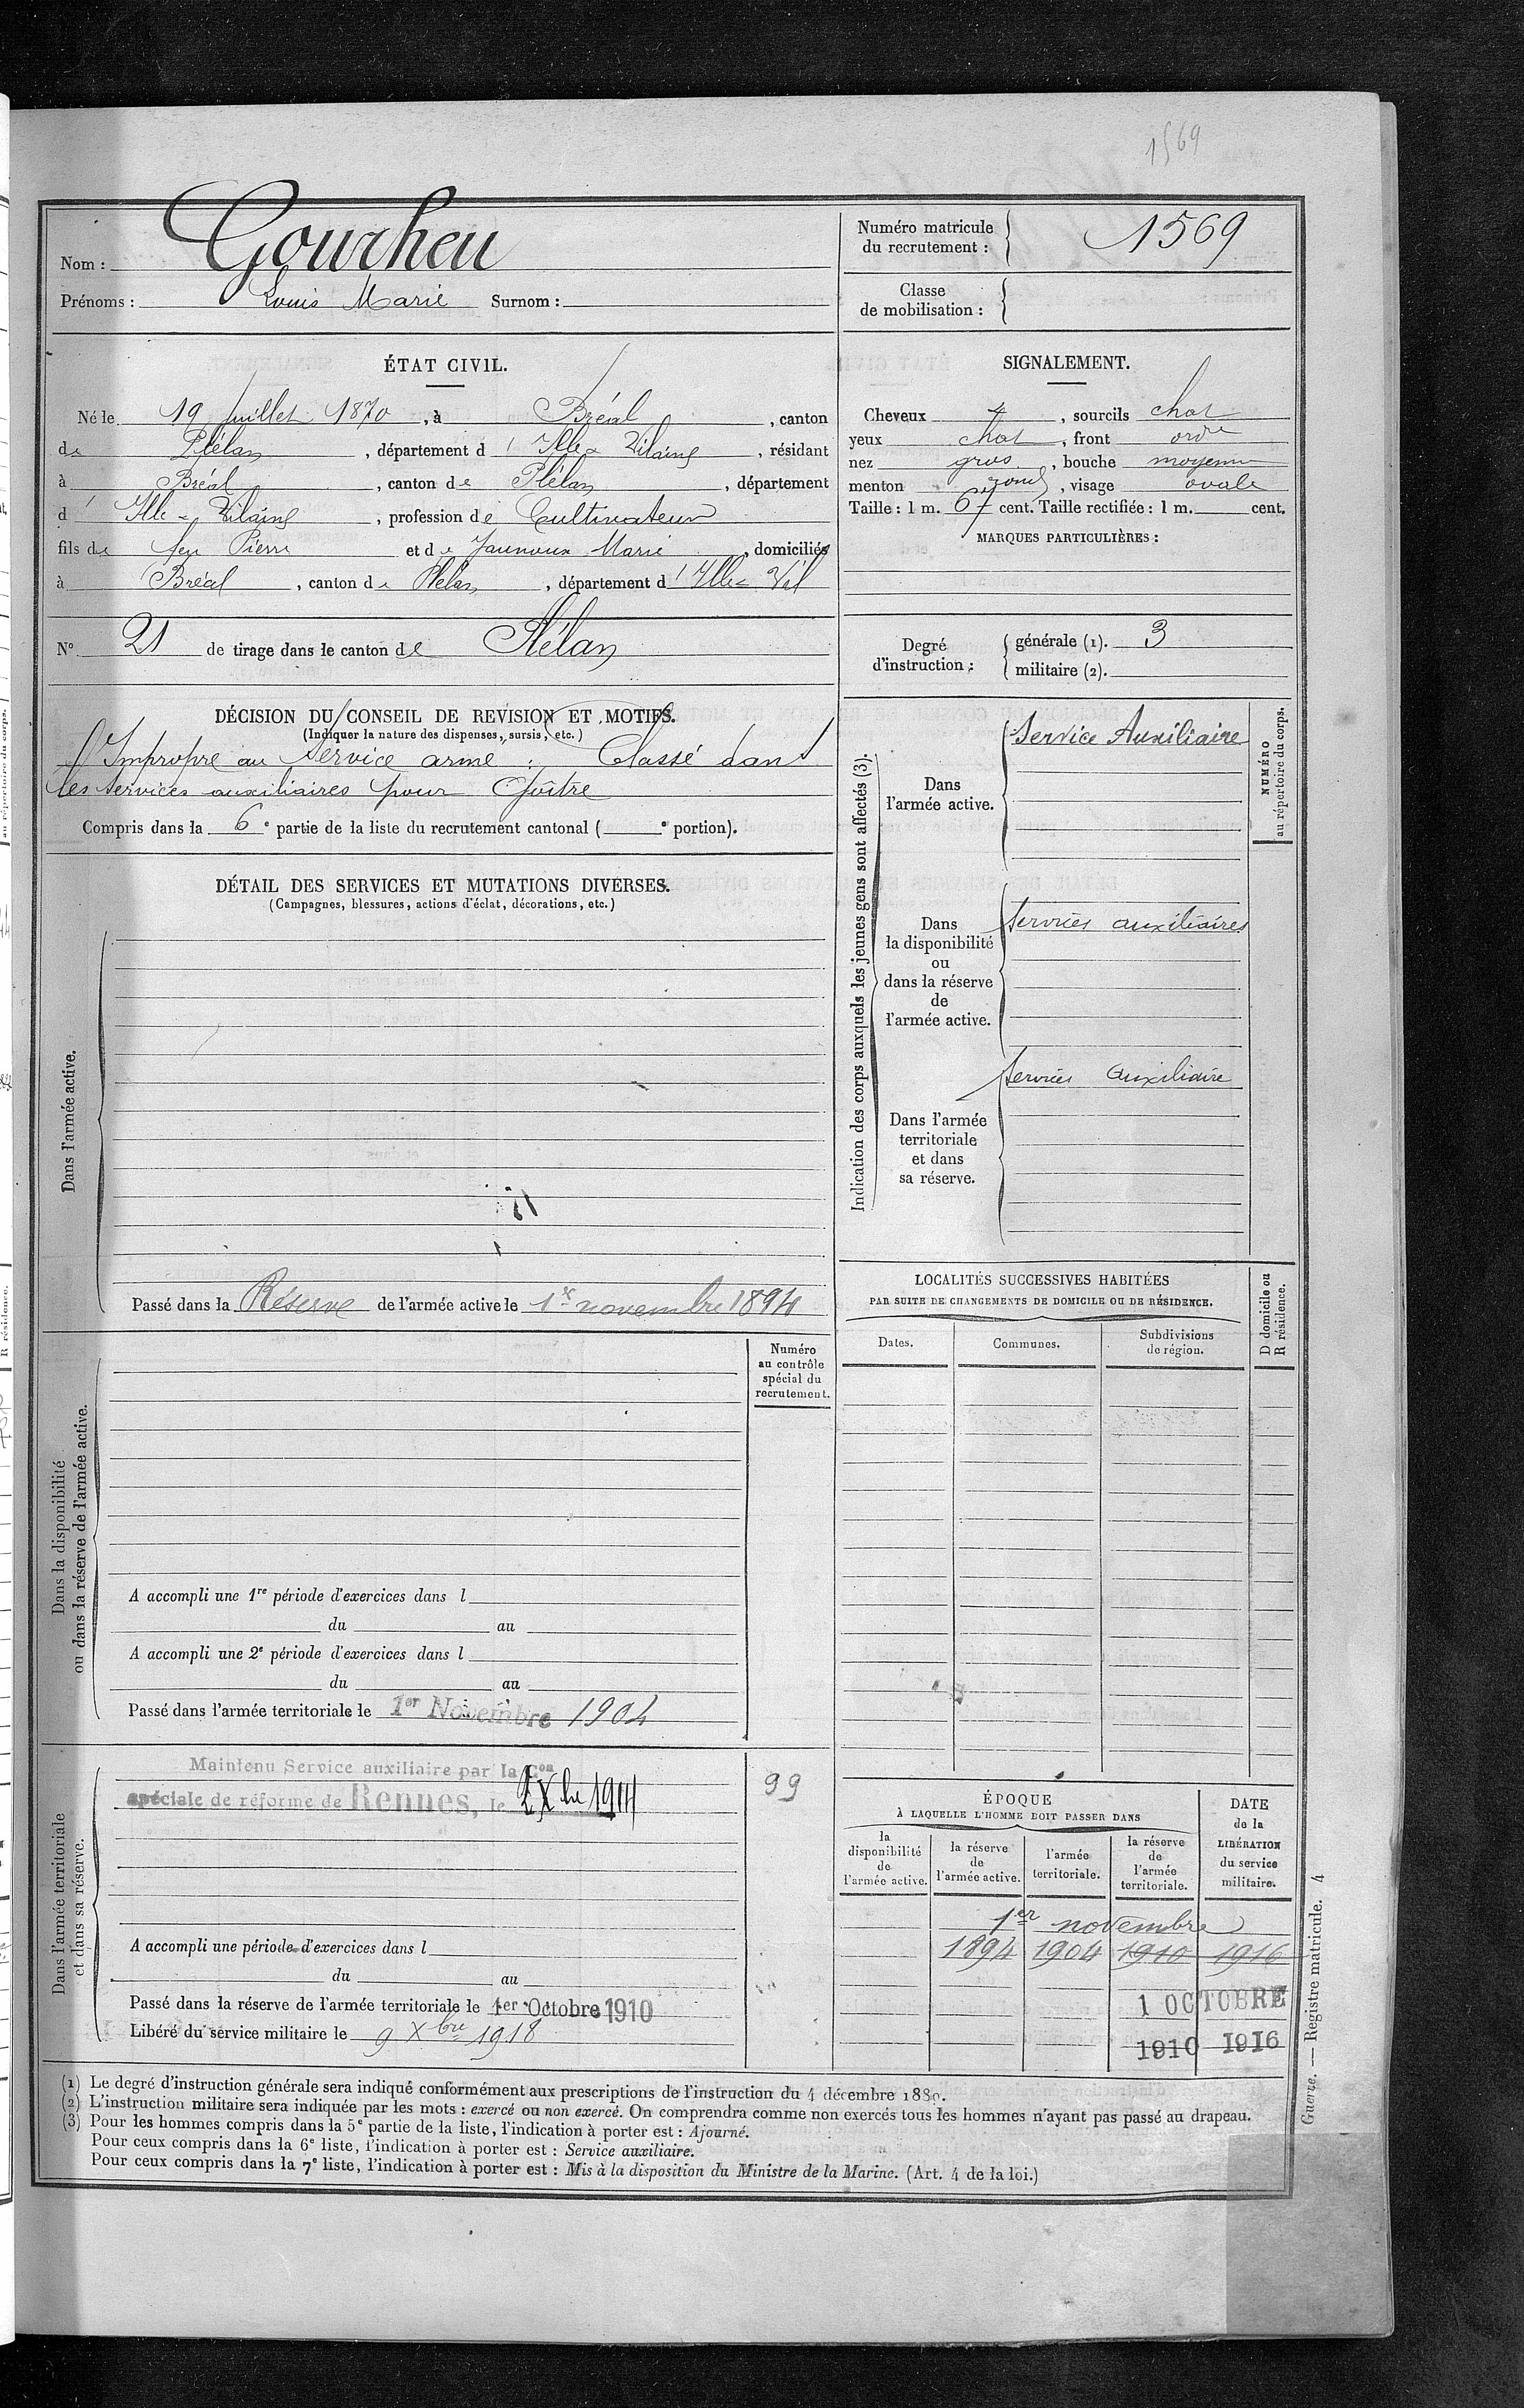 1569
Nom : Gourheu
Prénoms : Louis Marie Surnom :
Numéro matricule du recrutement : 1569
Classe de mobilisation :
ÉTAT CIVIL.
Né le 19 juillet 1870, à Bréal, canton
de Plélan, département d' Ille & Vilaine, résidant
à Bréal, canton de Plélan, département
d' Ille & Vilaine, profession de Cultivateur
fils de feu Pierre et de Jaunoux Marie, domiciliés
à Bréal, canton de Plélan, département d' Ille & Vil
N° 21 de tirage dans le canton de Plélan
SIGNALEMENT.
Cheveux, sourcils chat
yeux chat, front ordre
nez gros, bouche moyenne
menton rond, visage ovale
Taille : 1 m. 67 cent. Taille rectifiée : 1 m. cent.
MARQUES PARTICULIÈRES :
Degré d'instruction : générale (1). 3
militaire (2).
DÉCISION DU CONSEIL DE REVISION ET MOTIFS.
(Indiquer la nature des dispenses, sursis, etc.)
Impropre au Service armé : Classé dans
les services auxiliaires pour Goître
Compris dans la 6e partie de la liste du recrutement cantonal ( e portion).
DÉTAIL DES SERVICES ET MUTATIONS DIVERSES.
(Campagnes, blessures, actions d'éclat, décorations, etc.)
Dans l'armée active.
Passé dans la Réserve de l'armée active le 1er novembre 1894
Indication des corps auxquels les jeunes gens sont affectés (3).
NUMÉRO au répertoire du corps.
Dans l'armée active.
Service Auxiliaire
Dans la disponibilité ou dans la réserve de l'armée active.
Services auxiliaires
Dans l'armée territoriale et dans sa réserve.
Services Auxiliaire
Dans la disponibilité ou dans la réserve de l'armée active.
Numéro au contrôle spécial du recrutement.
A accompli une 1re période d'exercices dans l
du au
A accompli une 2e période d'exercices dans l
du au
Passé dans l'armée territoriale le 1er Novembre 1904
LOCALITÉS SUCCESSIVES HABITÉES
PAR SUITE DE CHANGEMENTS DE DOMICILE OU DE RÉSIDENCE.
Dates. Communes. Subdivisions de région. D domicile ou R résidence.
Dans l'armée territoriale et dans sa réserve.
Maintenu Service auxiliaire par la Con
spéciale de réforme de Rennes, le 2 Xbre 1914
99
A accompli une période d'exercices dans l
du au
Passé dans la réserve de l'armée territoriale le 1er Octobre 1910
Libéré du service militaire le 9 Xbre 1918
ÉPOQUE
À LAQUELLE L'HOMME DOIT PASSER DANS
la disponibilité de l'armée active.
la réserve de l'armée active.
l'armée territoriale.
la réserve de l'armée territoriale.
DATE de la LIBÉRATION du service militaire.
1er novembre
1894 1904 1910 1916
1 OCTOBRE
1910 1916
(1) Le degré d'instruction générale sera indiqué conformément aux prescriptions de l'instruction du 4 décembre 1889.
(2) L'instruction militaire sera indiquée par les mots : exercé ou non exercé. On comprendra comme non exercés tous les hommes n'ayant pas passé au drapeau.
(3) Pour les hommes compris dans la 5e partie de la liste, l'indication à porter est : Ajourné.
Pour ceux compris dans la 6e liste, l'indication à porter est : Service auxiliaire.
Pour ceux compris dans la 7e liste, l'indication à porter est : Mis à la disposition du Ministre de la Marine. (Art. 4 de la loi.)
Guerre. — Registre matricule. 4